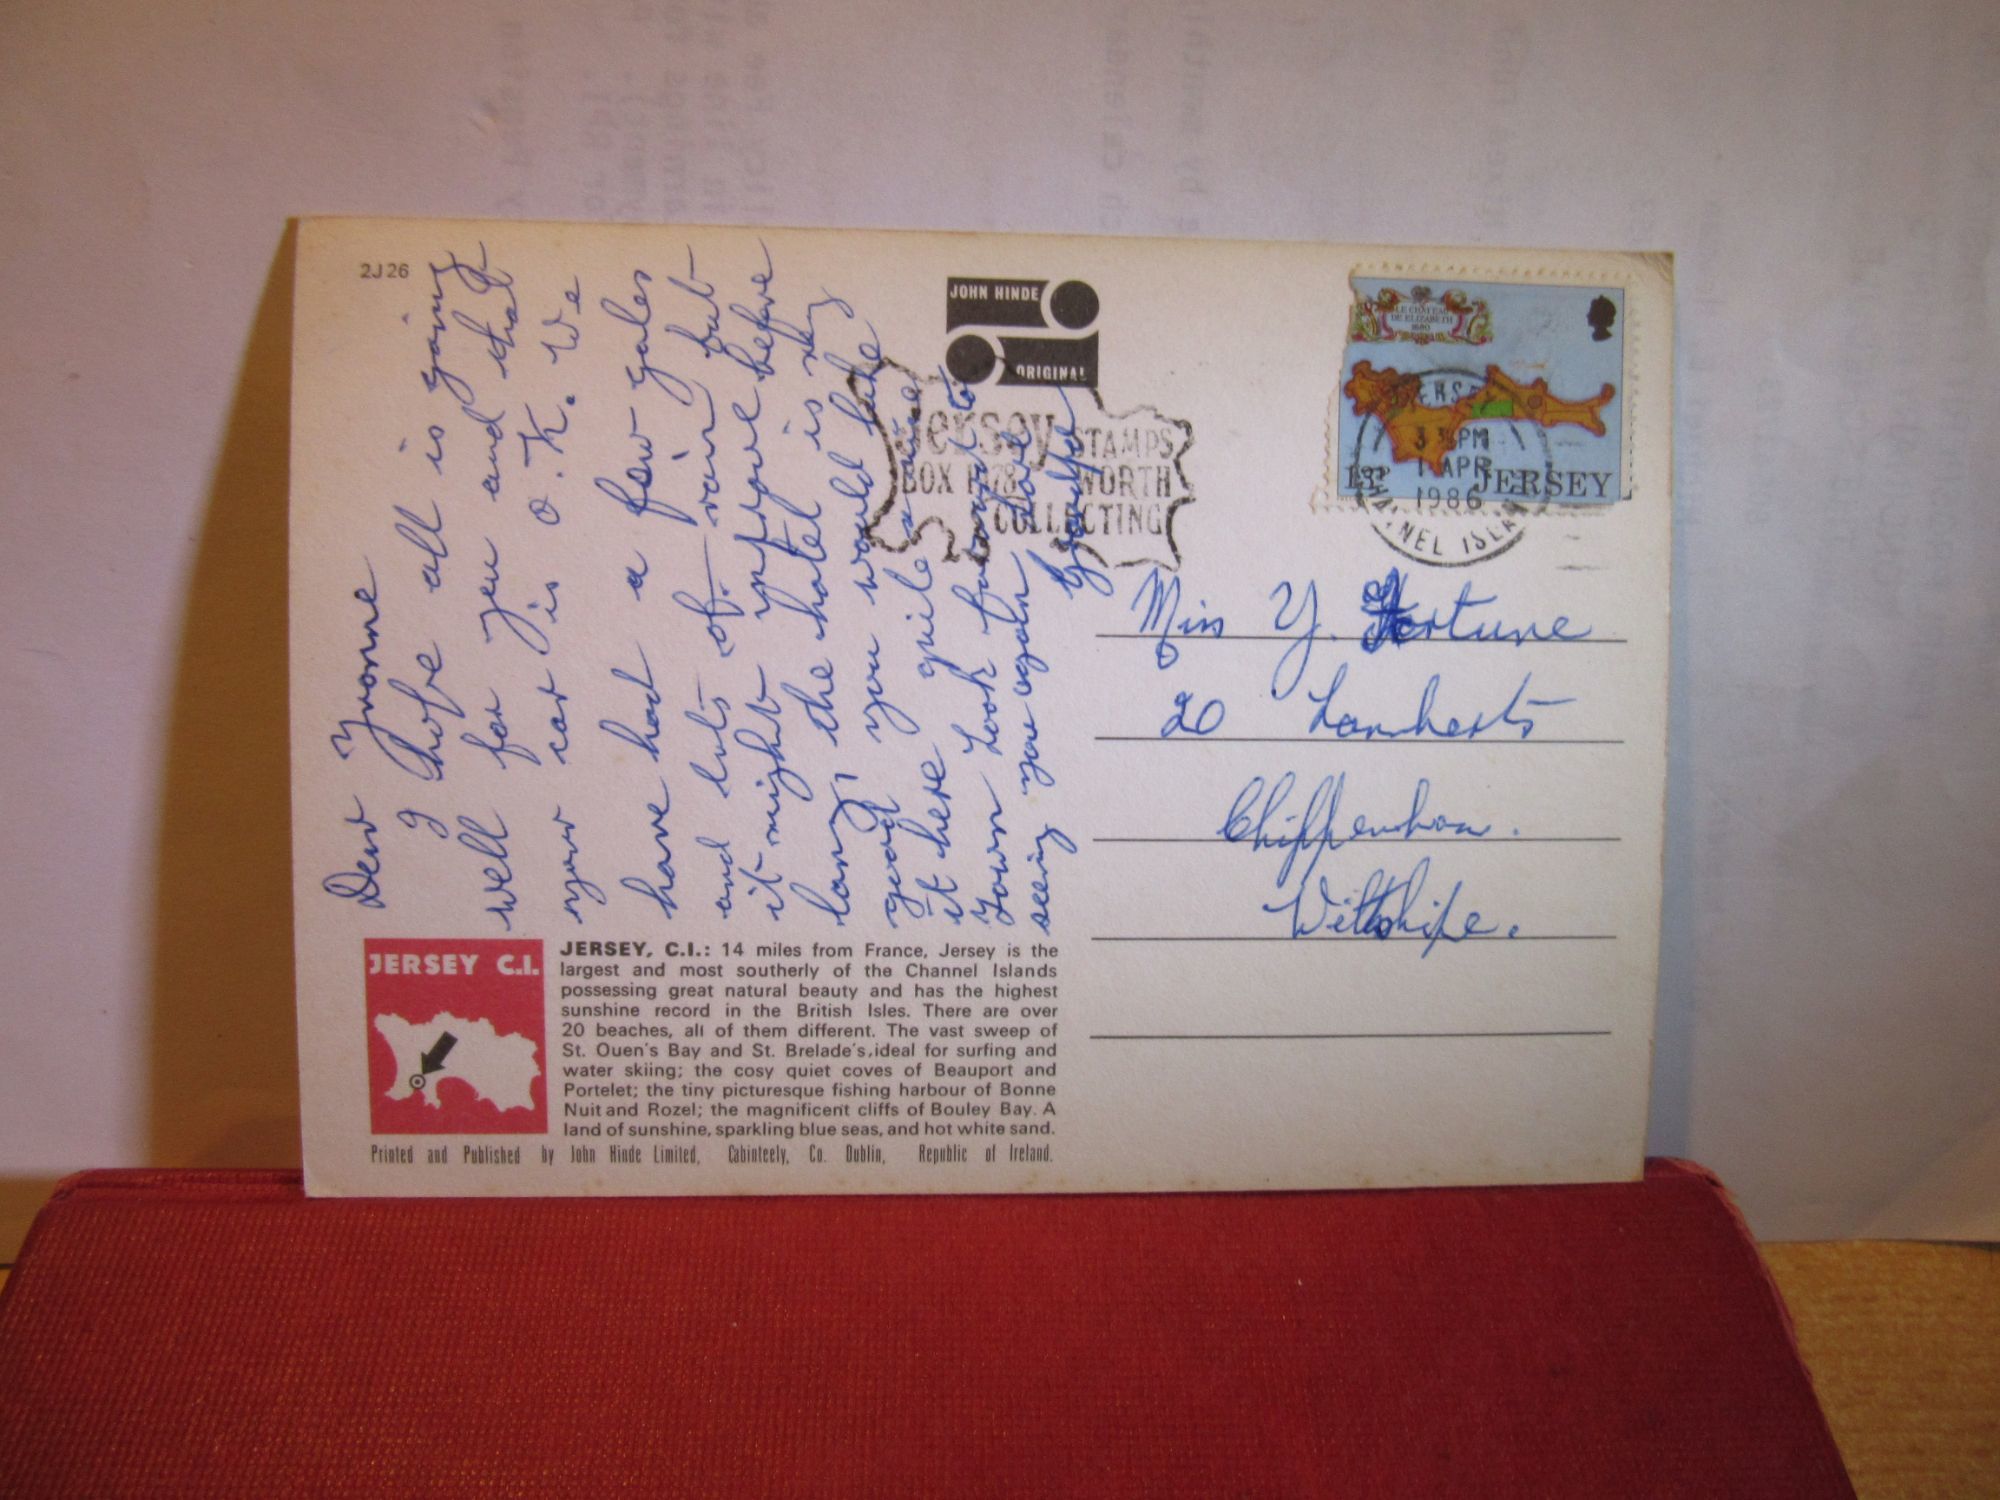 2J26
Dear Yvonne
I hope all is going
well for you and that
your car is O.K. We
have had a few gales
and lots of rain but
it might improve before
long, the hotel is very
good you would like
it here quite
Town Look forward to
seeing you again Love
JOHN HINDE
ORIGINAL
Jersey STAMPS
BOX WORTH
COLLECTING
LE CHATEAU
DE ELIZABETH
1680
JERSEY
PM
1 APR
1986
CHANNEL ISLAN
JERSEY
Miss Y. Fortune
20 Lamberts
Chippenham.
Wiltshire.
JERSEY C.I.
JERSEY, C.I.: 14 miles from France, Jersey is the
largest and most southerly of the Channel Islands
possessing great natural beauty and has the highest
sunshine record in the British Isles. There are over
20 beaches, all of them different. The vast sweep of
St. Ouen's Bay and St. Brelade's, ideal for surfing and
water skiing; the cosy quiet coves of Beauport and
Portelet; the tiny picturesque fishing harbour of Bonne
Nuit and Rozel; the magnificent cliffs of Bouley Bay. A
land of sunshine, sparkling blue seas, and hot white sand.
Printed and Published by John Hinde Limited, Cabinteely, Co. Dublin, Republic of Ireland.